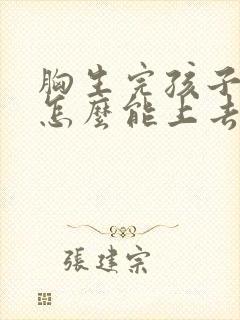 胸生完孩子
怎麼能上去
張建宗